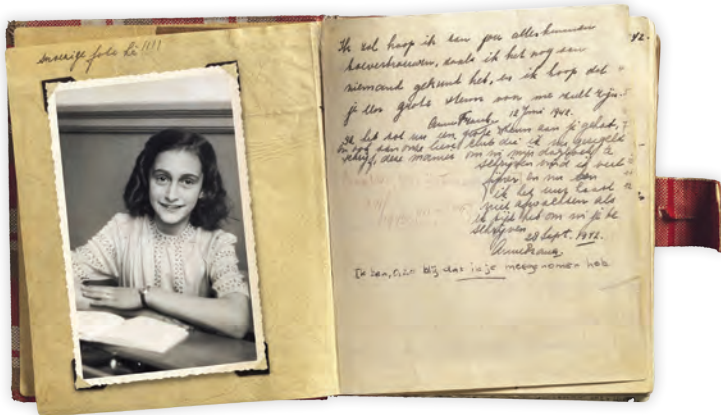 snoezige foto hè!!!!
Ik zal hoop ik aan jou alles kunnen
toevertrouwen, zoals ik het nog aan
niemand gekund heb, en ik hoop dat
je een grote steun voor me zult zijn.
Anne Frank. 12 Juni 1942.
Ik heb tot nu een grote steun aan je gehad,
en ook aan onze lieve club die ik nu geregeld
schrijf, deze manier om in mijn dagboek te
schrijven vind ik veel
fijner en nu kan
ik het uur haast
niet afwachten als
ik tijd heb om in je te
schrijven.
28 Sept. 1942.
Anne Frank.
Ik ben, O, zo blij dat ik je meegenomen heb